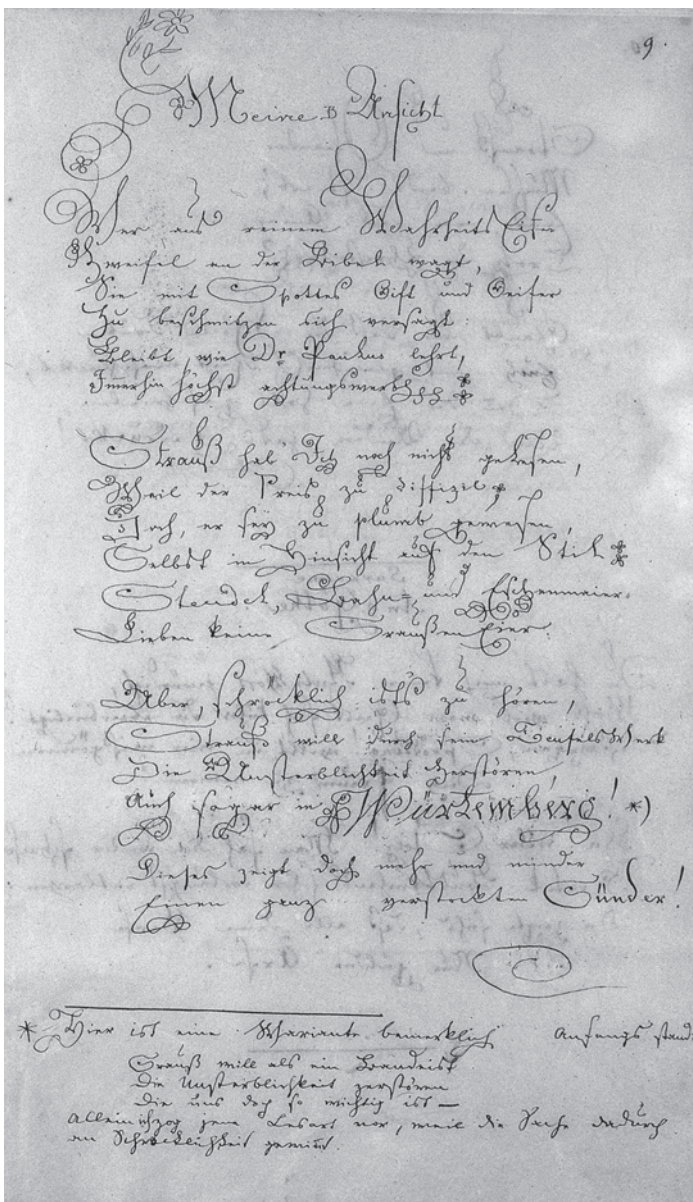 9.
Meine Ansicht
Wer aus reinem WahrheitsEifer
Zweifel an der Bibel wagt,
Sie mit Spottes Gift und Geifer
Zu beschmitzen sich versagt:
Bleibt, wie Dr Paulus lehrt,
Immerhin höchst achtungswerth
Strauß hab' Ich noch nicht gelesen,
Weil der Preis zu diffizil,
Doch, er sey zu plump gewesen,
Selbst in Hinsicht auf den Stil
Steudel, Hahn und Eschenmaier
Lieben keine StraußenEier.
Aber, schröcklich ists zu hören,
Strauß will durch sein TeufelsWerk
Die Unsterblichkeit zerstören,
Auch sogar in Würtemberg! *)
Dieses zeigt doch mehr und minder
Einen ganz verstockten Sünder!
* Hier ist eine Variante bemerklich Anfangs stand:
Strauß will als ein Bandeist
Die Unsterblichkeit zerstören
Die uns doch so wichtig ist —
Allein ich zog jene Lesart vor, weil die Sache dadurch
an Schröcklichkeit gewinnt.